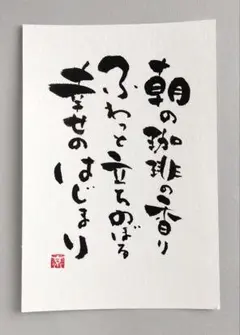 朝の珈琲の香り
ふわっと立ちのぼる
幸せのはじまり